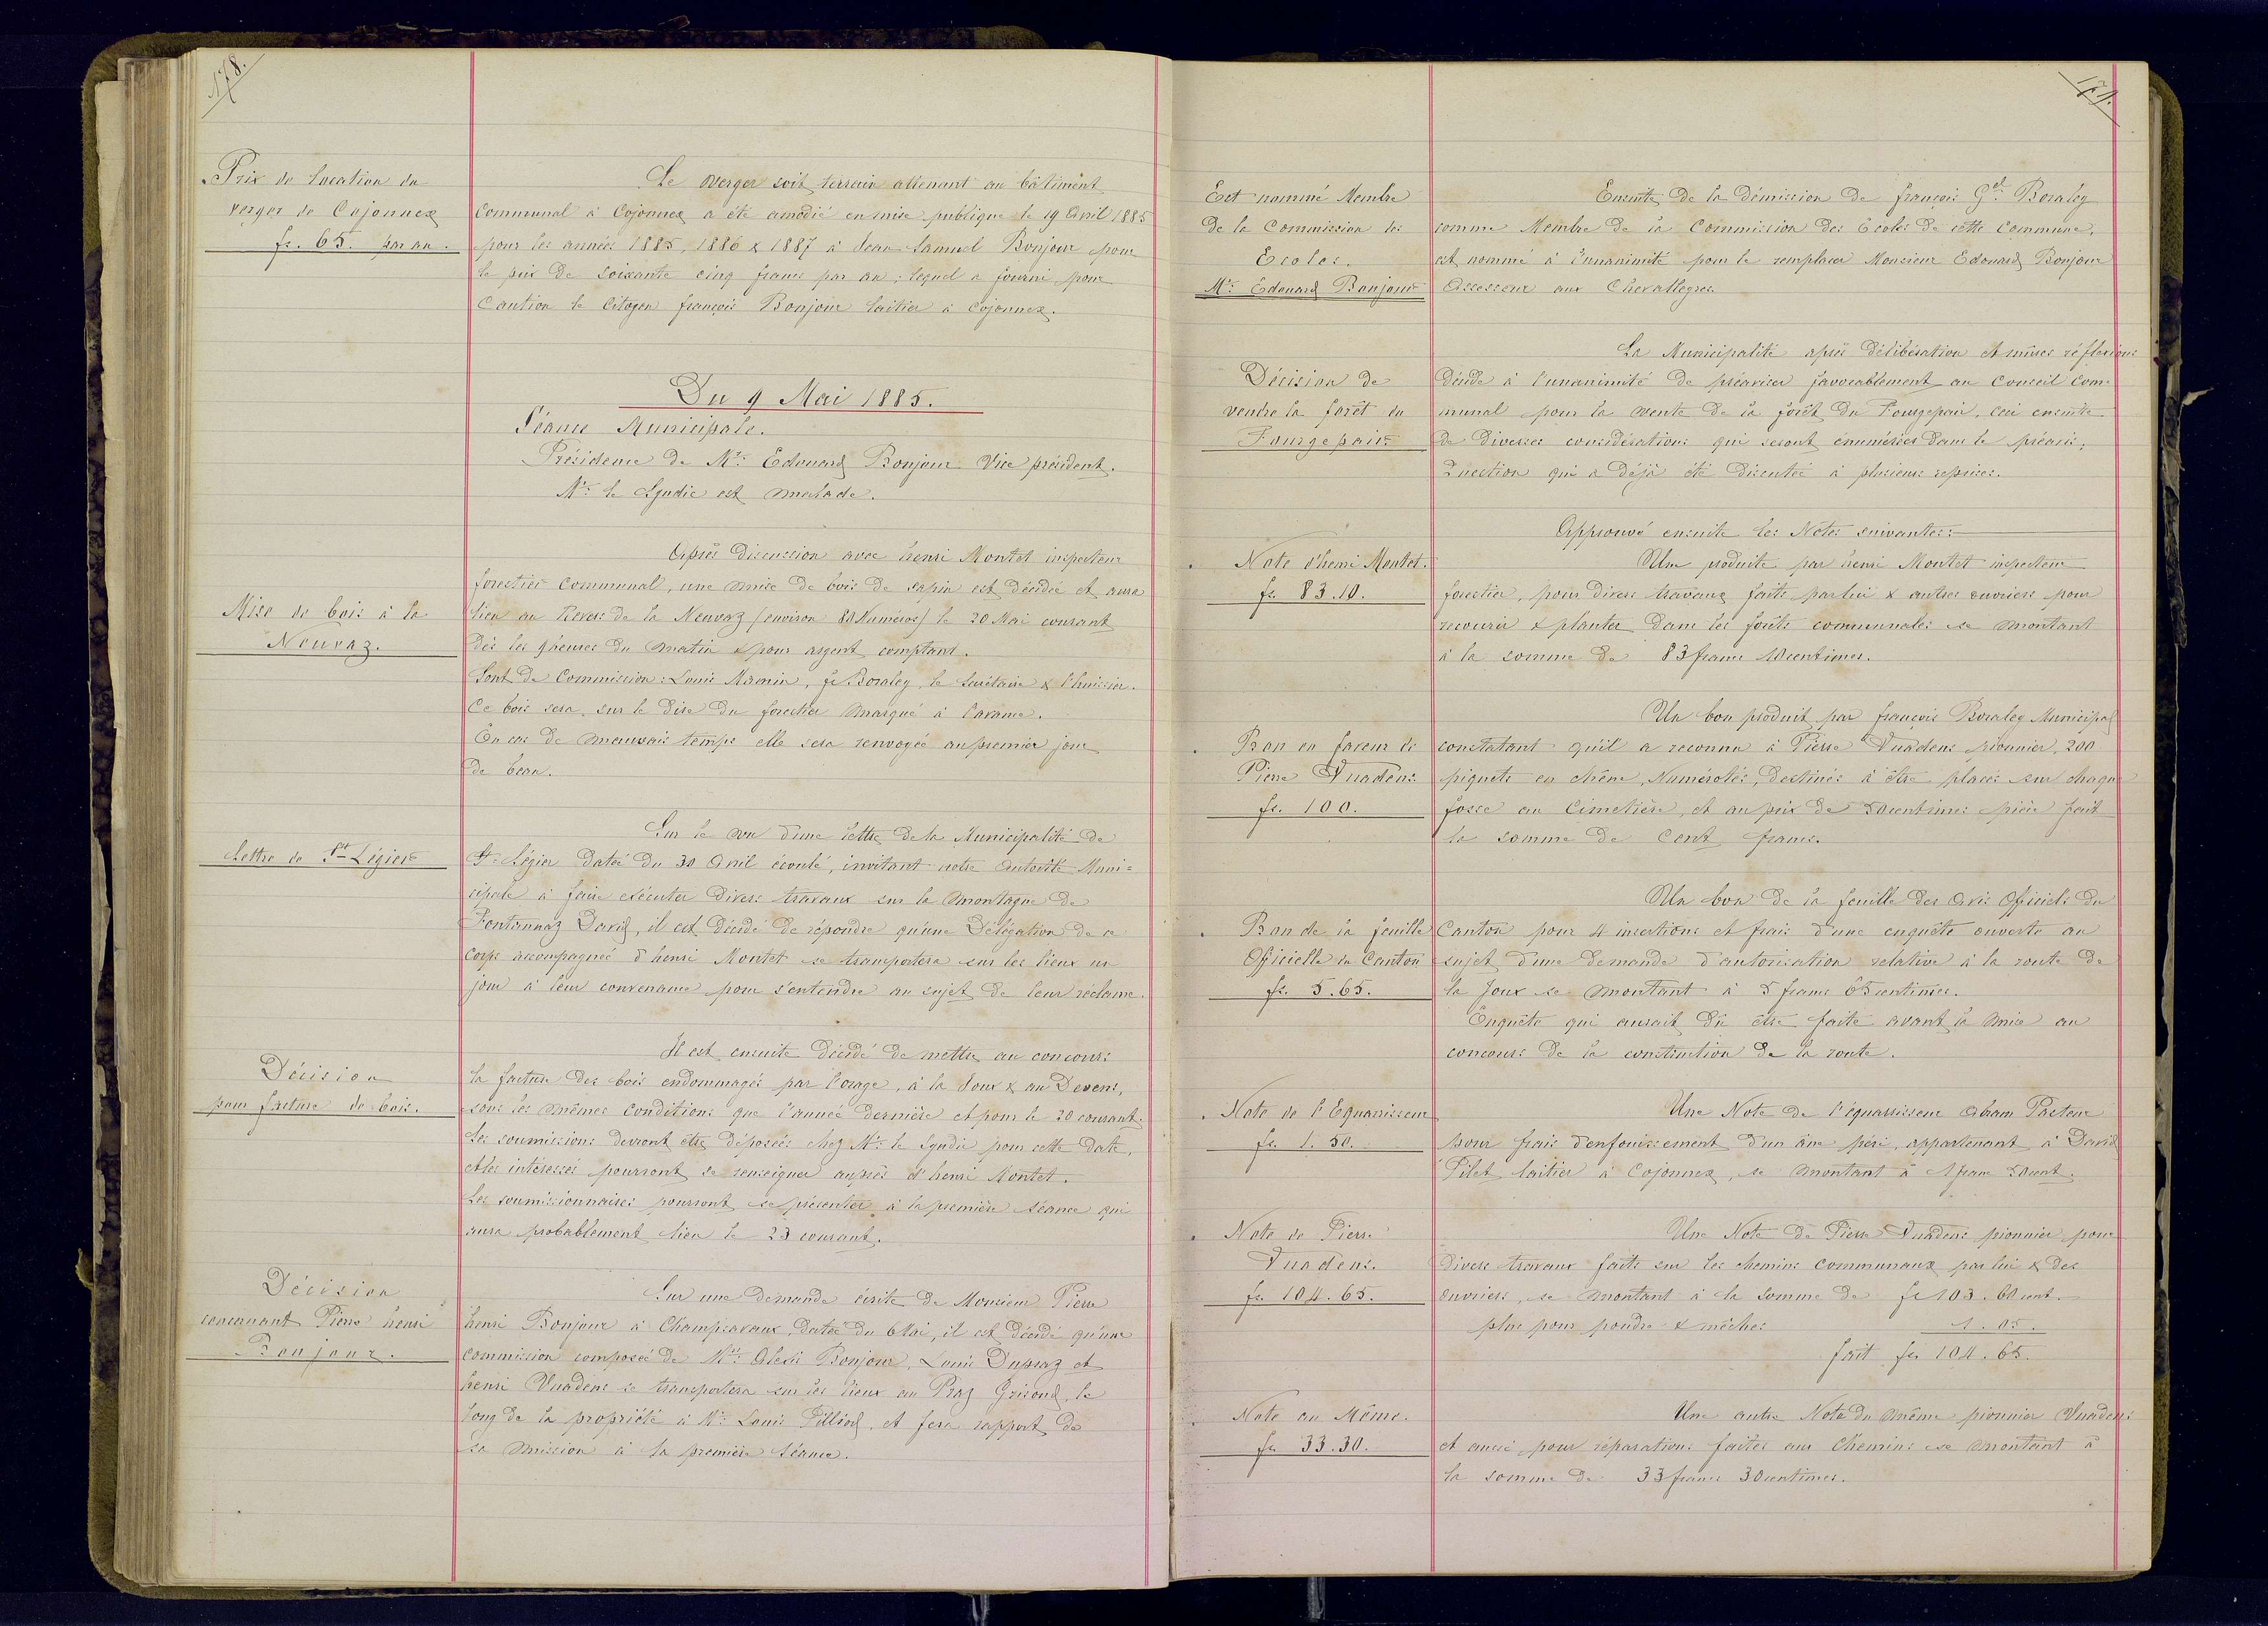 178.
Prix de location du
verger de Cojonnex
fr. 65. par an.
Le verger soit terrain attenant au bâtiment
communal à Cojonnex a été amodié en mise publique le 19 Avril 1885
pour les années 1885, 1886 & 1887 à Jean Samuel Bonjour pour
le prix de soixante cinq francs par an; lequel a fourni pour
Caution le Citoyen françois Bonjour laitier à Cojonnex.
Du 9 Mai 1885.
Séance Municipale.
Présidence de Mr. Edouard Bonjour Vice président.
Mr. le Syndic est malade.
Mise de bois à la
Neuvaz.
Après discussion avec henri Montet inspecteur
forestier communal, une mise de bois de sapin est décidée et aura
lieu au Revers de la Neuvaz (environ 80 Numéros) le 20 Mai courant
dès les 9 heures du matin & pour argent comptant.
Sont de Commission: Louis Mamin, fs Boraley, le secrétaire & l'huissier.
Ce bois sera, sur le dire du forestier marqué à l'avance.
En cas de mauvais temps elle sera renvoyée au premier jour
de beau.
Lettre de St Légier
Sur le vu d'une lettre de la Municipalité de
St. Légier datée du 30 Avril écoulé, invitant notre autorité Muni=
cipale à faire exécuter divers travaux sur la montagne de
Fontannaz David, il est décidé de répondre qu'une Délégation de ce
Corps accompagnée d'henri Montet se transportera sur les lieux un
jour à leur convenance pour s'entendre au sujet de leur réclame.
Décision
pour facture de bois.
Il est ensuite décidé de mettre au concours
la facture des bois endommagés par l'orage, à la Joux & au Devens,
sous les mêmes conditions que l'année dernière et pour le 20 courant.
Les soumissions devront être déposées chez Mr. le Syndic pour cette date,
et les intéressés pourront se renseigner auprès d'henri Montet.
Les soumissionnaires pourront se présenter à la première séance qui
aura probablement lieu le 23 courant.
Décision
concernant Pierre henri
Bonjour.
Sur une demande écrite de Monsieur Pierre
henri Bonjour à Champsavaux, datée du 6 Mai, il est décidé qu'une
commission composée de Mrs. Alexis Bonjour, Louis Dupraz et
henri Vuadens se transportera sur les lieux au Praz Grisoud, le
long de la propriété à Mr. Louis Pilliod, et fera rapport de
sa mission à la première séance.
179.
Est nommé Membre
de la Commission des
Ecoles.
Mr. Edouard Bonjour
Ensuite de la démission de françois Gel. Boraley
comme Membre de la Commission des Ecoles de cette Commune,
est nommé à l'unanimité pour le remplacer Monsieur Edouard Bonjour
Assesseur aux Chevalleyres.
Décision de
vendre la forêt du
Fourgepair
La Municipalité après délibération et mûres réflexions
décide à l'unanimité de préaviser favorablement au Conseil com=
munal pour la vente de la forêt du Fourgepair, ceci ensuite
de diverses considérations qui seront énumérées dans le préavis,
Question qui a déjà été discutée à plusieurs reprises.
Approuvé ensuite les Notes suivantes:
Note d'henri Montet.
fr. 83.10.
Une produite par henri Montet inspecteur
forestier, pour divers travaux faits par lui & autres ouvriers pour
recourir & planter dans les forêts communales se montant
à la somme de 83 francs 10 centimes.
Bon en faveur de
Pierre Vuadens
fr. 100.
Un bon produit par françois Boraley Municipal
constatant qu'il a reconnu à Pierre Vuadens pionnier, 200
piquets en chêne, Numérotés, destinés à être placés sur chaque
fosse au Cimetière, et au prix de 50 centimes pièce fait
la somme de Cent francs.
Bon de la feuille
Officielle du Canton
fr. 5.65.
Un bon de la feuille des Avis Officiels du
Canton pour 4 insertions et frais d'une enquête ouverte au
sujet d'une demande d'autorisation relative à la route de
la Joux se montant à 5 francs 65 centimes.
Enquête qui aurait dû être faite avant la mise au
concours de la construction de la route.
Note de l'Equarrisseur
fr. 1.50.
Une Note de l'équarrisseur Abram Pasteur
pour frais d'enfouissement d'un âne péri, appartenant à David
Pilet laitier à Cojonnex, se montant à 1 franc 50 cent.
Note de Pierre
Vuadens.
fr. 104.65.
Une Note de Pierre Vuadens pionnier pour
divers travaux faits sur les chemins communaux par lui & des
ouvriers, se montant à la somme de fr 103. 60 cent.
plus pour poudre & mèches 1.05.
fait fr. 104.65.
Note au Même.
fr 33.30.
Une autre Note du même pionnier Vuadens
et aussi pour réparations faites aux Chemins se montant à
la somme de 33 francs 30 centimes.